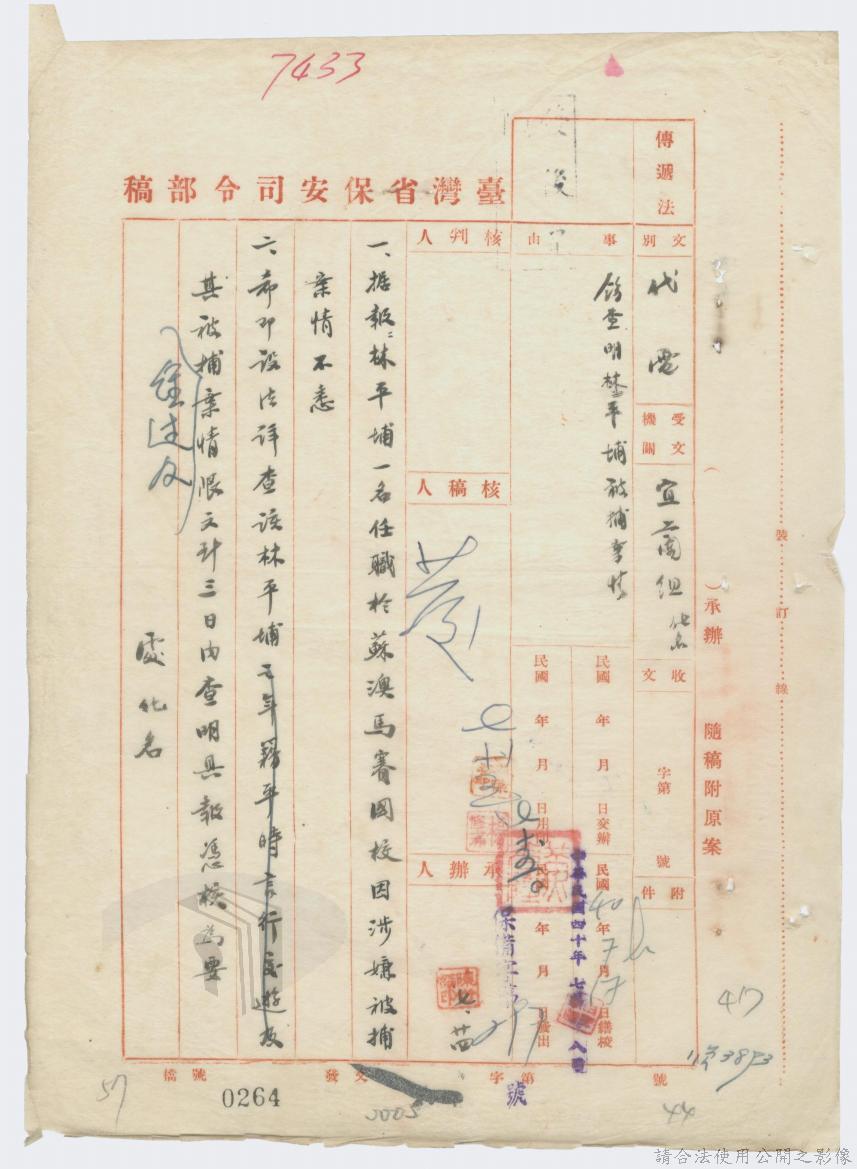 7433
臺灣省保安司令部稿
傳遞法
文別
代電
受文機關
宜蘭組 化名
收文
字第
號
附件
事由
飭查明林平埔被捕案情
民國 年 月 日交辦
民國40年7月17日繕校
中華民國四十年七月
民國 年 月 日
民國 年 月 日發出
保備字第
號
核判人
核稿人
承辦人
一、据報:林平埔一名任職於蘇澳馬賽国校因涉嫌被捕
案情不悉
二、希即設法詳查該林平埔之年籍平時言行交遊及
其被捕案情限文到三日內查明具報憑核為要
處化名
承辦
隨稿附原案
裝訂線
417
3893
號
第
字
文
發
號
檔
0264
57
0005
44
請合法使用公開之影像